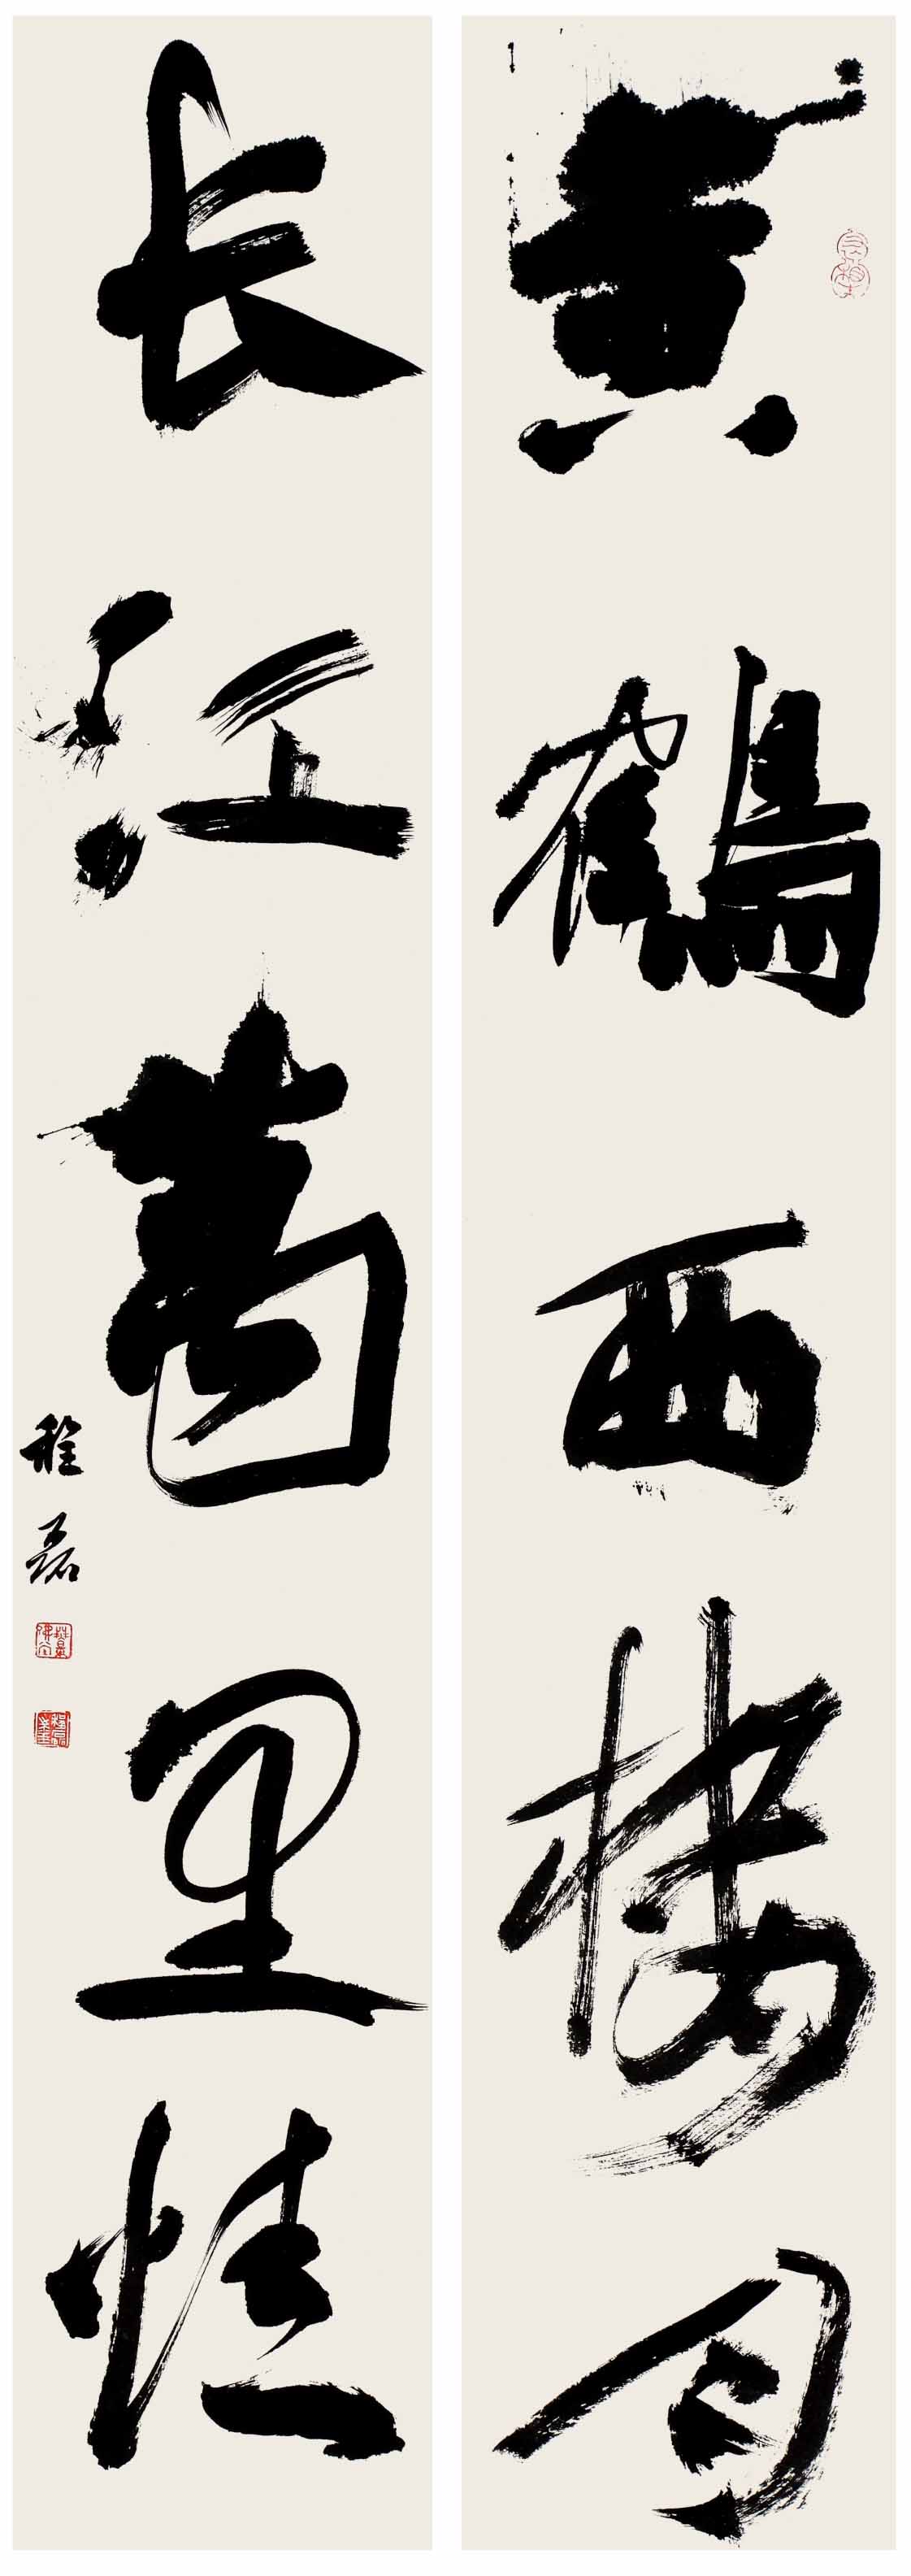 黄鶴西樓月
长江萬里情
程磊